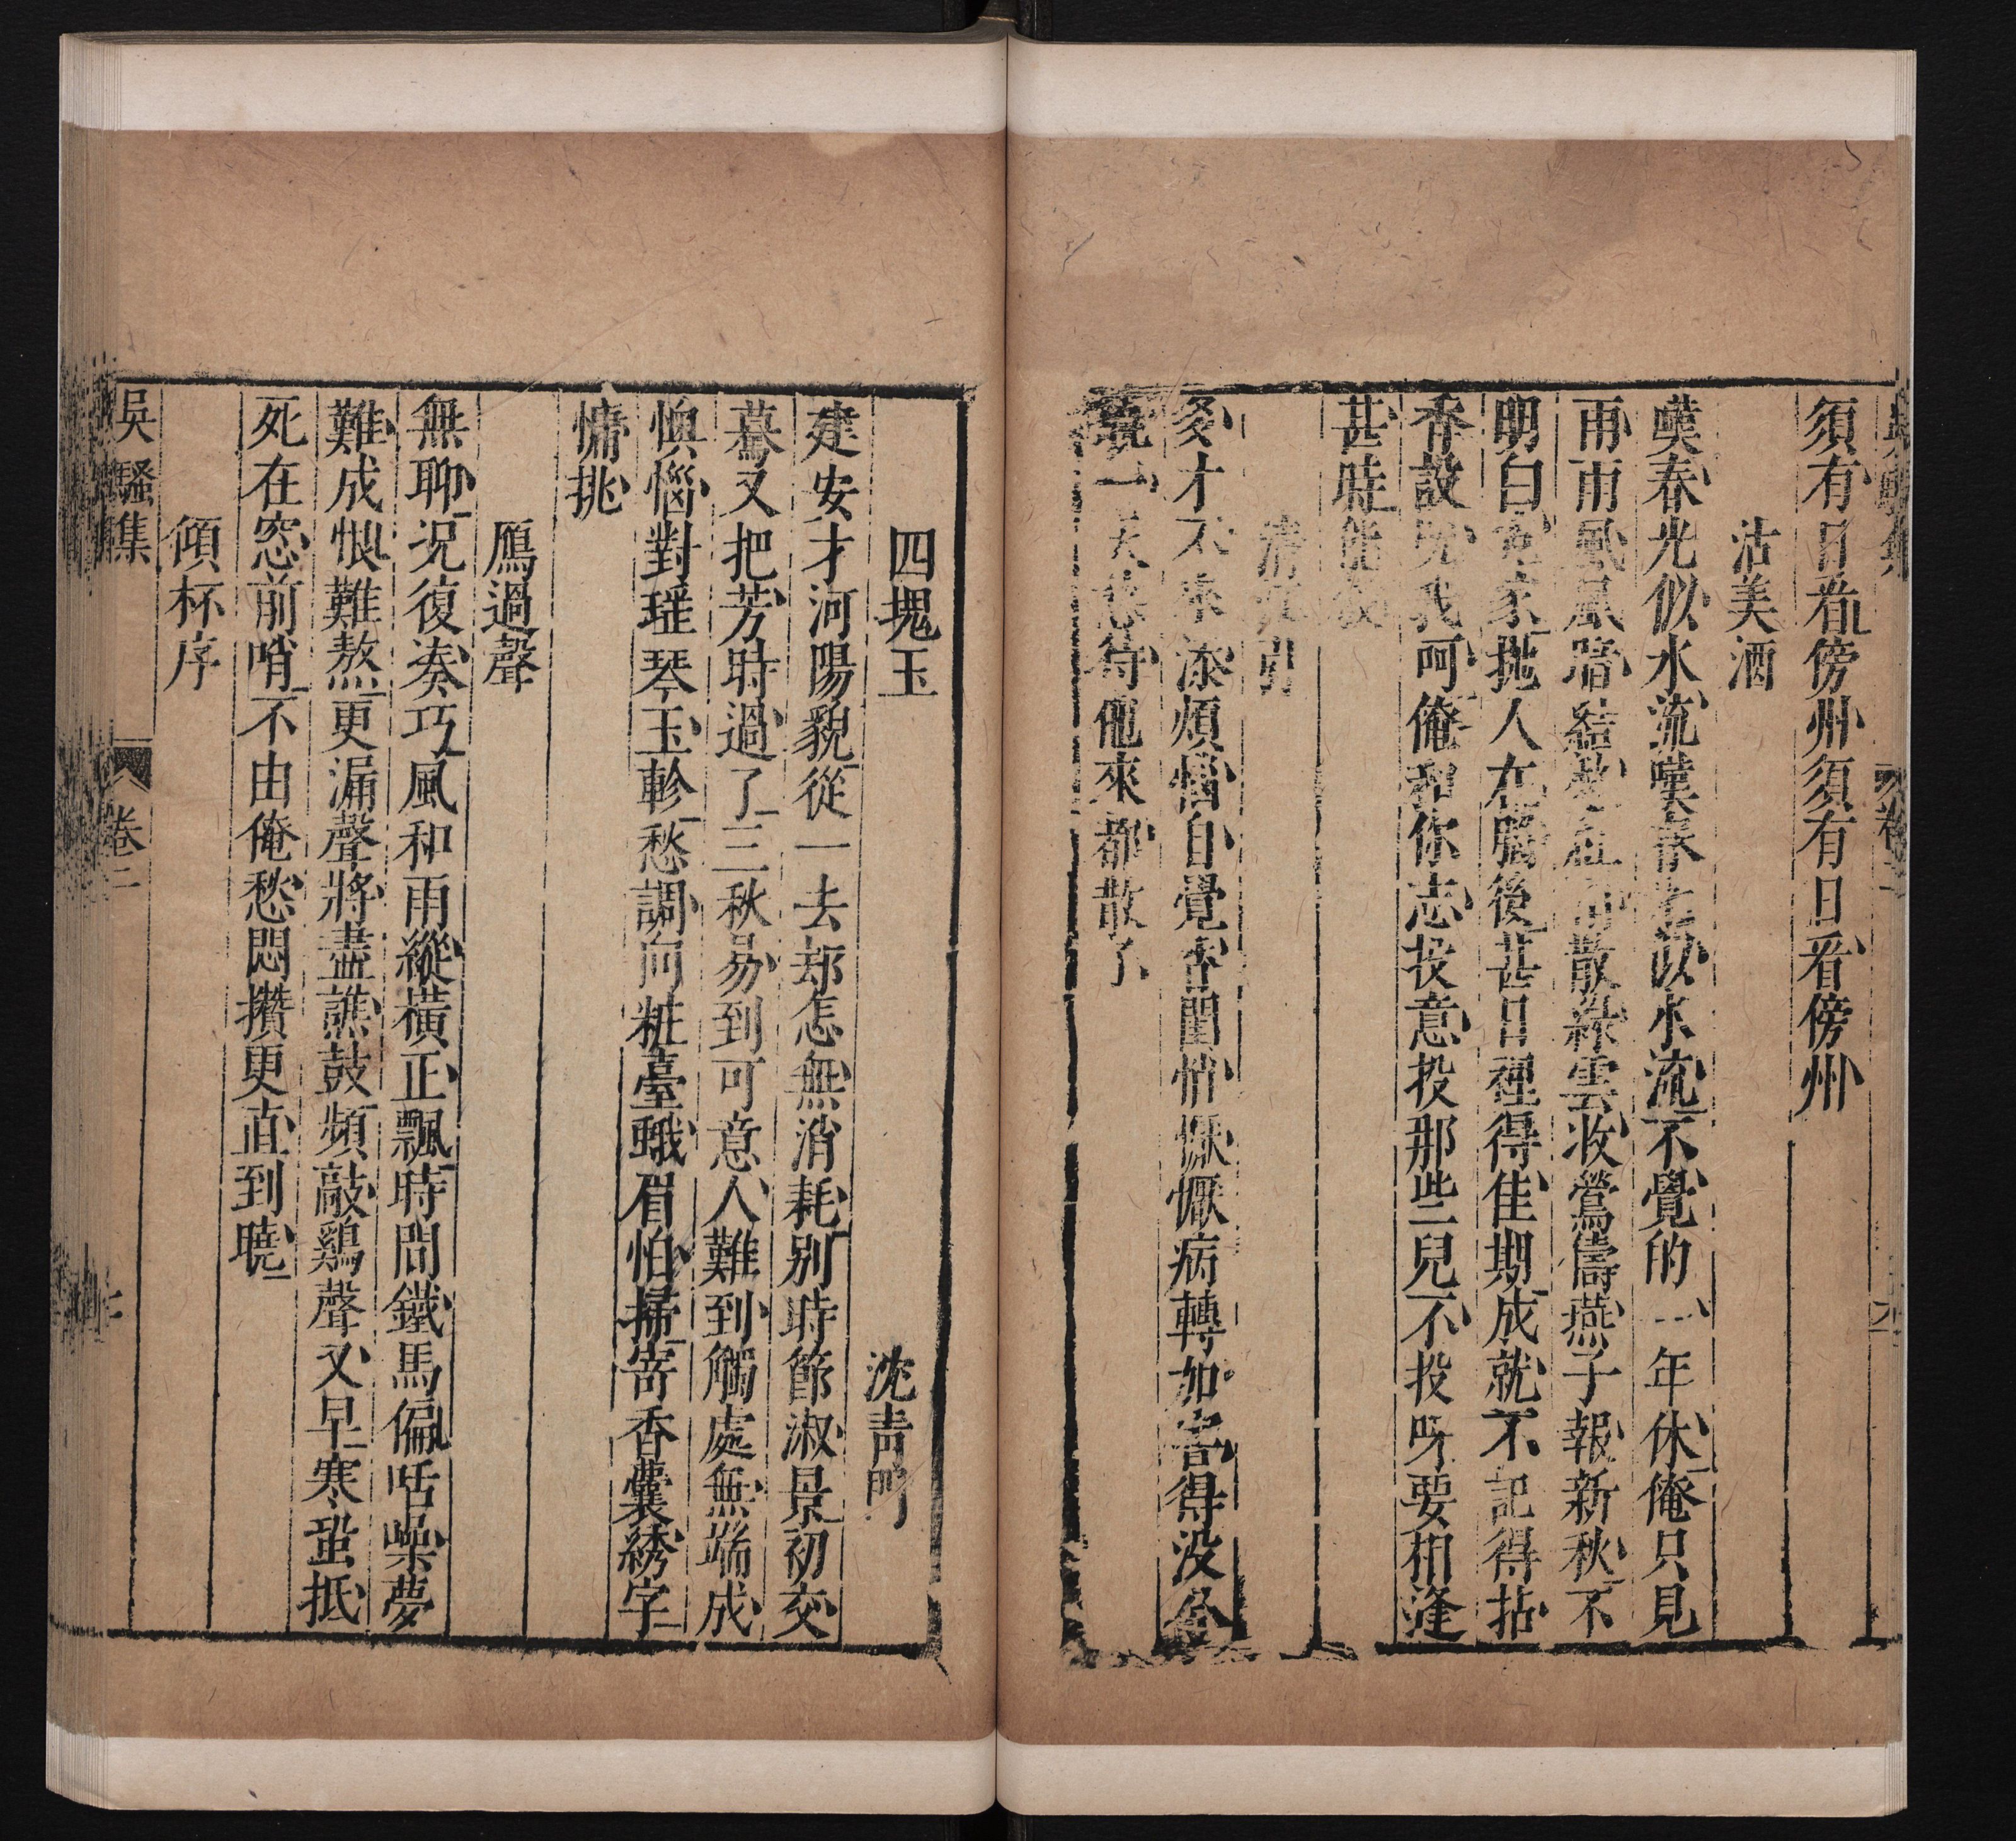 須有日看傍州須有日看傍州
沽美酒
嘆春光似水流嘆春光似水流不覺的一年休俺只見
雨雨風風踏結紅雨散綠雲收鶯儔燕子報新秋不
明白家拋人在腦後甚日裡得佳期成就不記得拈
香設咒我呵俺和你志投意投那些兒不投呀要相逢
甚時能彀
清江引
多才不來添煩惱自覺香閨悄懨懨病轉加害得没
一天愁待他來都散了
四塊玉
沈青門
建安才河陽貌從一去却怎無消耗别時節淑景初交
驀又把芳時過了三秋易到可意人難到觸處無端成
懊惱對瑤琴玉軫愁調向粧臺蛾眉怕掃寄香囊綉字
慵挑
鴈過聲
無聊况復湊巧風和雨縱横正飄時間鐵馬偏聒噪夢
難成恨難熬更漏聲將盡譙鼓頻敲鷄聲又早寒蛩抵
死在窓前哨不由俺愁悶攢更直到曉
傾杯序
吳騷集
卷二